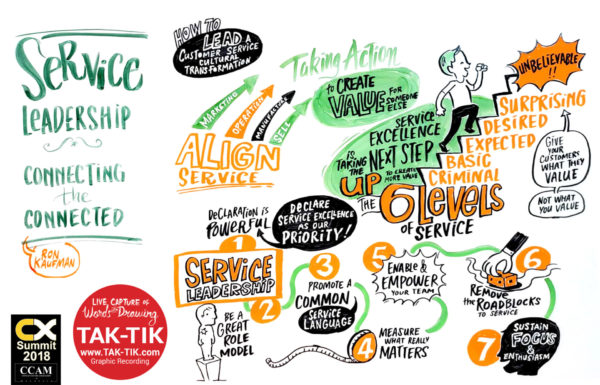 Service
LEADERSHIP
CONNECTING
the
CONNECTED
RON
KAUFMAN
CX
Summit
2018
CCAM
LIVE CAPTURE OF
Words in Drawing
TAK-TIK
www.TAK-TIK.com
Graphic Recording
HOW TO
LEAD A
CUSTOMER SERVICE
CULTURAL
TRANSFORMATION
MARKETING
OPERATING
MANUFACTURE
SELL
ALIGN
SERVICE
Taking Action
to CREATE
VALUE FOR
SOMEONE
ELSE
SERVICE
EXCELLENCE
IS TAKING THE
NEXT STEP
UP TO CREATE
MORE VALUE
UNBELIEVABLE
!!
SURPRISING
DESIRED
EXPECTED
BASIC
CRIMINAL
THE 6 LEVELS
OF SERVICE
GIVE
YOUR
CUSTOMERS
WHAT THEY
VALUE
NOT WHAT
YOU VALUE
DECLARATION IS
POWERFUL
DECLARE
SERVICE EXCELLENCE
AS OUR
PRIORITY!
1
SERVICE
LEADERSHIP
2
BE A
GREAT
ROLE
MODEL
3
PROMOTE A
COMMON
SERVICE
LANGUAGE
4
MEASURE
WHAT REALLY
MATTERS
5
ENABLE &
EMPOWER
YOUR TEAM
6
REMOVE
THE ROADBLOCKS
TO SERVICE
7
SUSTAIN
FOCUS
& ENTHUSIASM